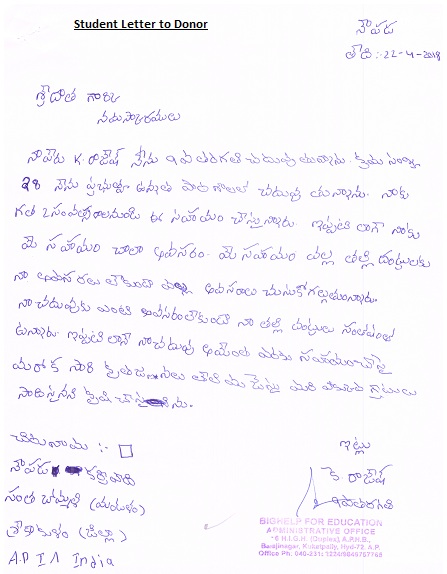 Student Letter to Donor
నౌపడ
తేది:-22-4-2018
శ్రీదాత గారికి
నమస్కారములు
నాపేరు K. రాజేష్ నేను 9వ తరగతి చదువుతున్నాను. క్రమ సంఖ్య
28 నేను ప్రభుత్వ ఉన్నత పాఠశాలలో చదువుతున్నాను. నాకు
గత 2సంవత్సరాలనుండి ఈ సహాయం చేస్తున్నారు. ఇప్పటి లాగే నాకు
మీ సహాయం చాలా అవసరం. మీ సహాయం వల్ల తల్లి దండ్రులకు
నా అవసరాలు లేకుండా అవసరాలు చూసుకోగల్గుతున్నారు.
నా చదువుకు ఎంటి అవసరంలేకుండా నా తల్లి దండ్రులు సంతోషంగా
ఉన్నారు. ఇప్పటి లాగే నా చదువు అయ్యేంత వరకు సహాయం
మరొక సారి కృతజ్ఞతలు
సాధిస్తానని కృషి చేస్తాను.
చిరునామా :-
నౌపడ
సంత బొమ్మాళి (మండలం)
శ్రీకాకుళం (జిల్లా)
A.P India
ఇట్లు
కె రాజేష్
9వతరగతి
BIGHELP FOR EDUCATION
ADMINISTRATIVE OFFICE
"6 N.I.G.H. (Duplex), A.P.H.B.,
Barajinagar, Kukatpally, Hyd-72. A.P.
Office Ph. 040-231: 1224/9849757768